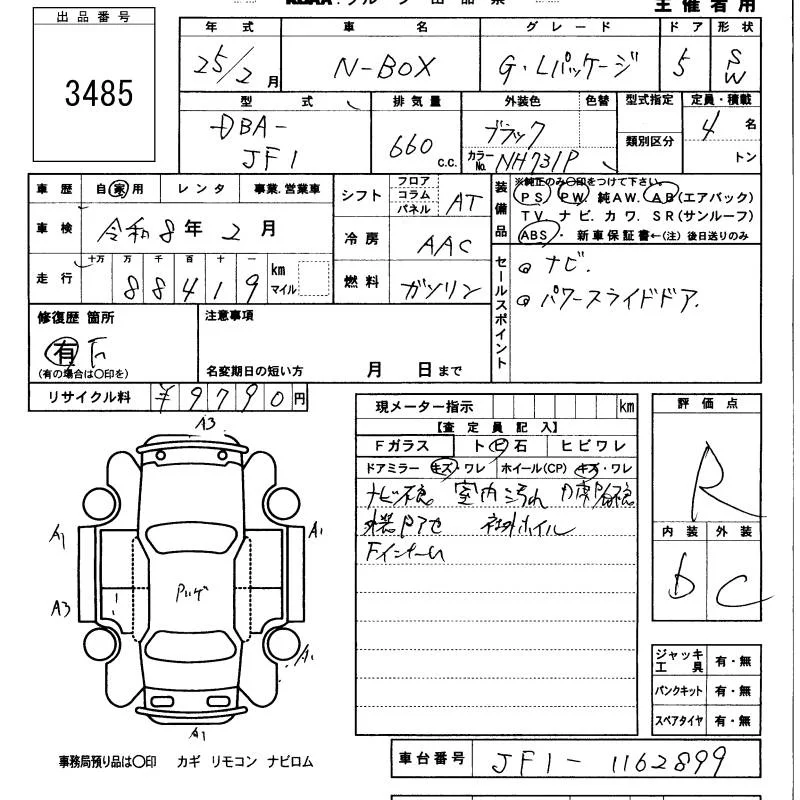 主催者用
出品番号
3485
年式 車名 グレード ドア 形状
25/2月 N-BOX G・Lパッケージ 5 SW
型式 排気量 外装色 色替 型式指定 定員・積載
DBA-JF1 660c.c. ブラック カラーNo. NH731P 類別区分 4名
トン
車歴 自家用 レンタ 事業.営業車
車検 令和8年2月
走行 十万 万 千 百 十 一
88419 km マイル
シフト フロア コラム パネル AT
冷房 AAC
燃料 ガソリン
装備品 ※純正のみ〇印をつけて下さい。
PS PW 純AW. AB(エアバック)
TV ナビ. カワ. SR(サンルーフ)
ABS・ 新車保証書←(注) 後日送りのみ
セールスポイント
ナビ.
パワースライドドア.
修復歴 箇所
有
(有の場合は〇印を)
注意事項
名変期日の短い方 月 日まで
リサイクル料 ¥9790円
現メーター指示 km
【査定員記入】
Fガラス トビ石 ヒビワレ
ドアミラー キズ・ワレ ホイール(CP) キズ・ワレ
室内汚れ
社外ホイル
評価点
R
内装 外装
b C
A3
A1 A1
A3
A1
A1
ジャッキ工具 有・無
パンクキット 有・無
スペアタイヤ 有・無
事務局預り品は〇印 カギ リモコン ナビロム
車台番号 JF1-1162899